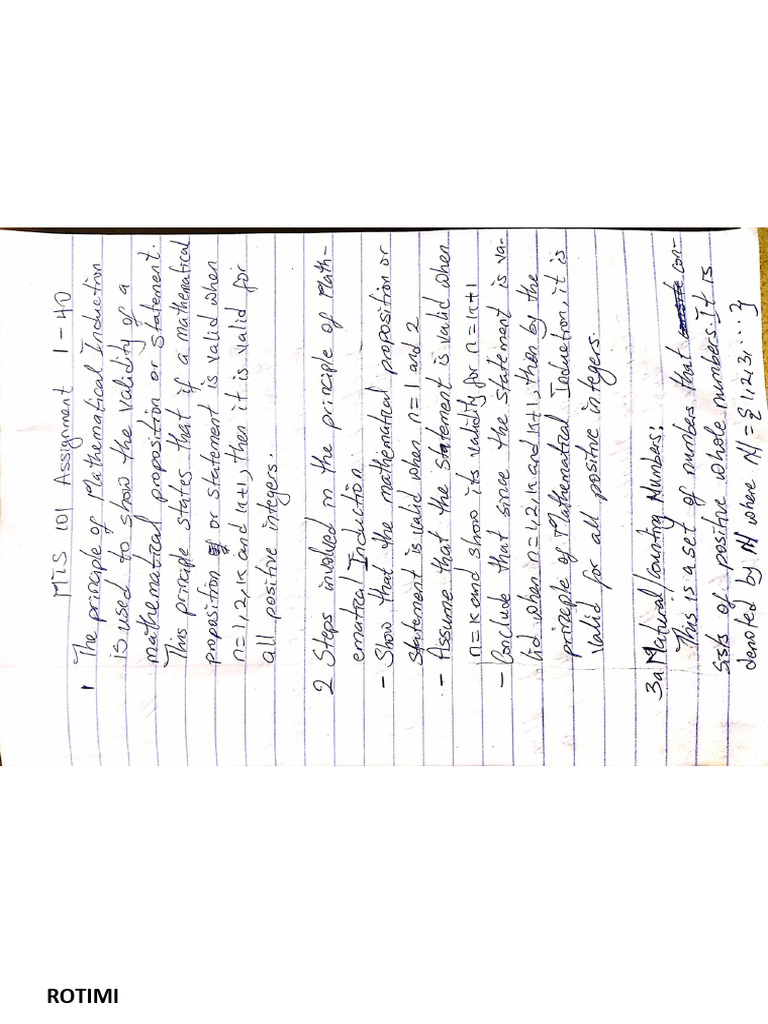 MIS 101 Assignment 1-40
1 The principle of Mathematical Induction
is used to show the validity of a
mathematical proposition or statement.
This principle states that if a mathematical
proposition or statement is valid when
n=1,2,k and k+1, then it is valid for
all positive integers.
2 Steps involved in the principle of Math-
ematical Induction
- Show that the mathematical proposition or
statement is valid when n=1 and 2
- Assume that the statement is valid when
n=k and show its validity for n=k+1
- Conclude that since the statement is va-
lid when n=1,2,k and k+1, then by the
principle of Mathematical Induction, it is
valid for all positive integers.
3a Natural/Counting Numbers:
This is a set of numbers that con-
sists of positive whole numbers. It is
denoted by N where N = {1,2,3, ...}
ROTIMI